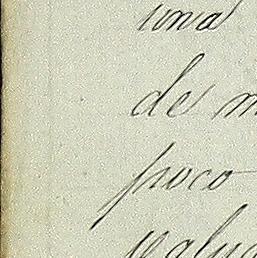 una
de m
poco